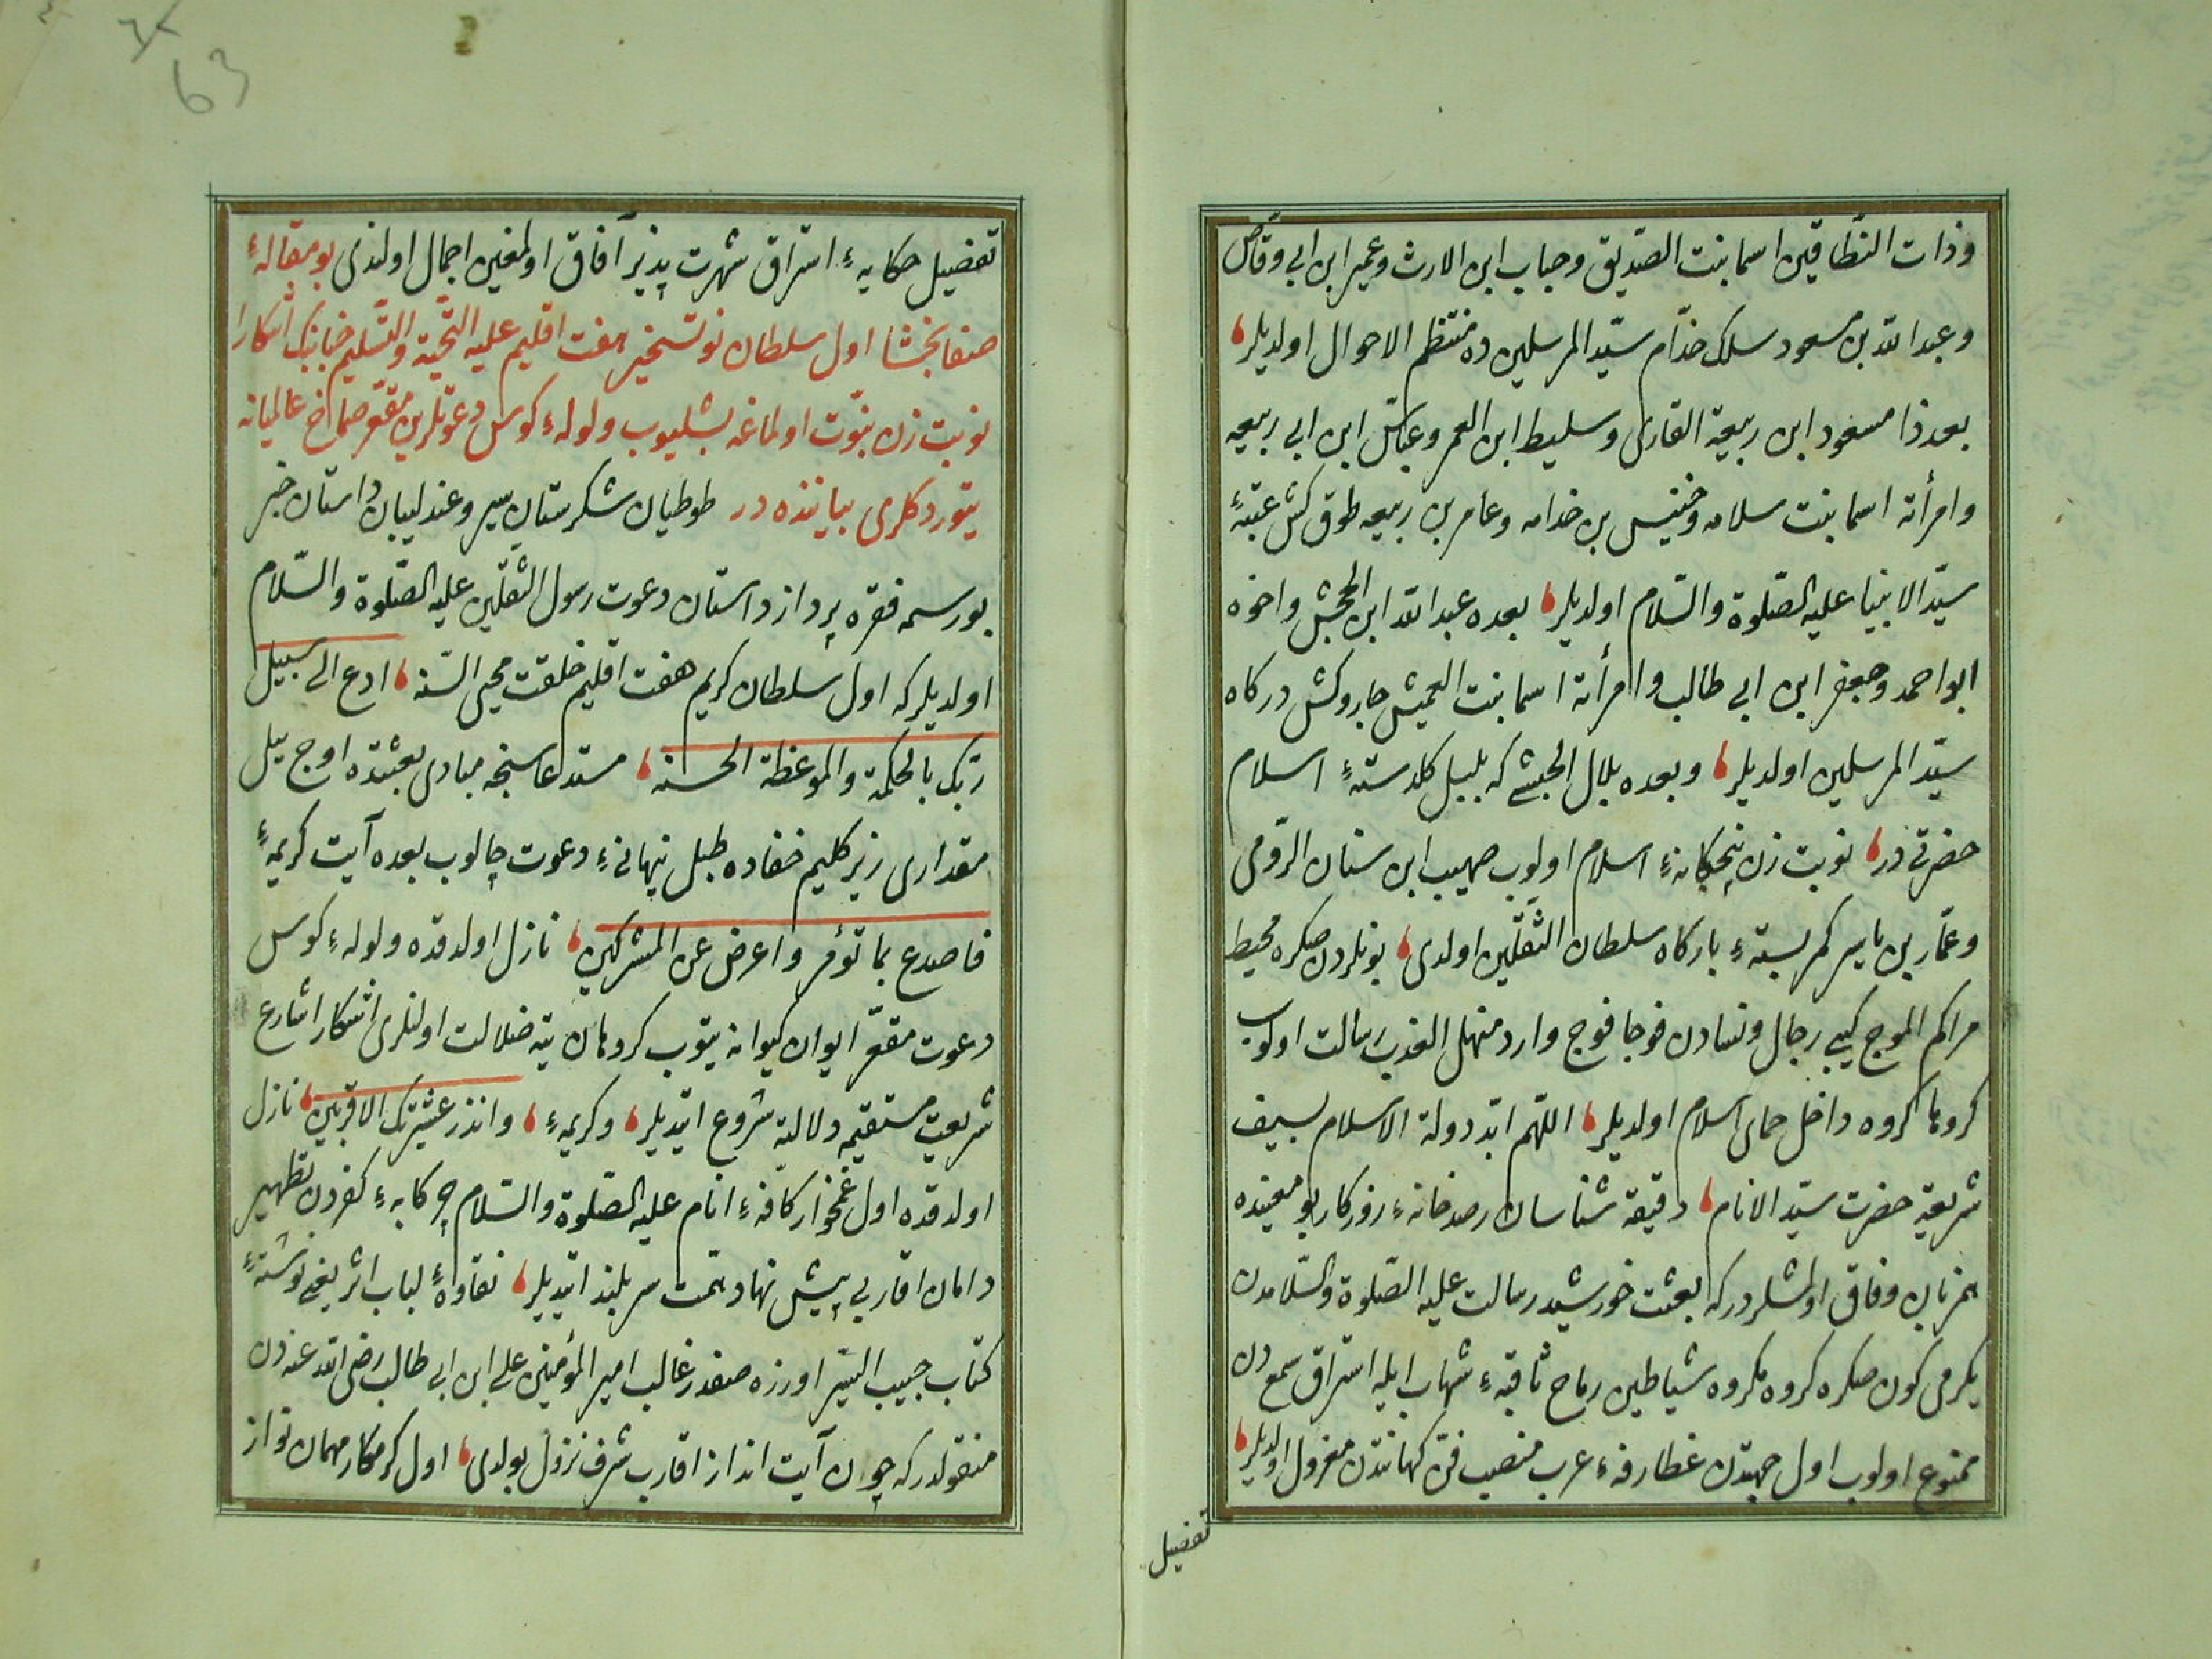 وذات النطاقين اسما بنت الصديق وحباب ابن الارث وعمير ابن ابي وقاص
وعبد الله بن مسعود سلك خدّام سيّد المرسلين ده منتظم الاحوال اولديلر
بعد ذا مسعود ابن ربيعة القارى وسليط ابن العمر وعباس ابن ابي ربيعه
وامرأته اسما بنت سلامه وخنيس بن خدامه وعامر بن ربيعه طوق كش عتبهٔ
سيّد الانبيا عليه الصّلوة والسّلام اولديلر بعده عبد الله ابن الجحش واخوه
ابو احمد وجعفر ابن ابي طالب وامرأته اسما بنت العميش جاروكش دركاه
سيّد المرسلين اولديلر وبعده بلال الحبشي كه بلبل كلدستهٔ اسلام
حضرتى در نوبت زن پنجكانهٔ اسلام اولوب صهيب ابن سنان الرّومى
وعمّار بن ياسر كمر بستهٔ باركاه سلطان الثّقلين اولدى بونلردن صكره محيط
مراكم الموج كيبى رجال ونسادن فوجا فوج وارد منهل العذب رسالت اولوب
كروها كروه داخل حماى اسلام اولديلر اللّهم ابّد دولة الاسلام بسيف
شريعة حضرت سيّد الانام دقيقه شناسان رصدخانهٔ روزكار بو معنيده
همزبان وفاق اولمشلردر كه بعثت خورشيد رسالت عليه الصّلوة والسّلامدن
يكرمى كون صكره كروه مكروه شياطين رماح ثاقبهٔ شهاب ايله استراق سمعدن
ممنوع اولوب اول جهتدن غطارفهٔ عرب منصب فنّ كهانتدن معزول اولديلر
تفصيل
63
تفصيل حكايهٔ استراق شهرت پذير آفاق اولمغين اجمال اولندى بو مقالهٔ
صفابخشا اول سلطان نو تسخير هفت اقليم عليه التّحية والتّسليم جنابنك آشكارا
نوبت زن نبوّت اولماغه بشليوب ولولهٔ كوس دعوتلرين مقعّر صماخ عالميانه
يتوردكلرى بياننده در طوطيان شكرستان سير وعندليبان داستان خبر
بو رسمه فقره پرداز داستان دعوت رسول الثّقلين عليه الصّلوة والسّلام
اولديلر كه اول سلطان كريم هفت اقليم خلقت محيى السّنه ادع الى سبيل
ربّك بالحكمة والموعظة الحسنة مستدعاسنجه مبادى بعثتده اوج ييل
مقدارى زير كليم خفاده طبل پنهانئ دعوت چالوب بعده آيت كريمهٔ
فاصدع بما تؤمر واعرض عن المشركين نازل اولدقده ولولهٔ كوس
دعوت مقعّر ايوان كيوانه يتوب كروهان تيه ضلالت اولنلرى آشكارا شارع
شريعت مستقيمه دلالته شروع ايتديلر وكريمهٔ وانذر عشيرتك الاقربين نازل
اولدقده اول غمخوار كافهٔ انام عليه الصّلوة والسّلام چركابهٔ كفردن تطهير
دامان اقاربى پيش نهاد همّت سربلند ايتديلر نقاوهٔ لباب اثر يعنى نوشتهٔ
كتاب حبيب السّير اوزره صفدر غالب امير المؤمنين على ابن ابي طالب رضى الله عنه دن
منقولدر كه چون آيت انذار اقارب شرف نزول بولدى اول كرمكار مهمان نواز